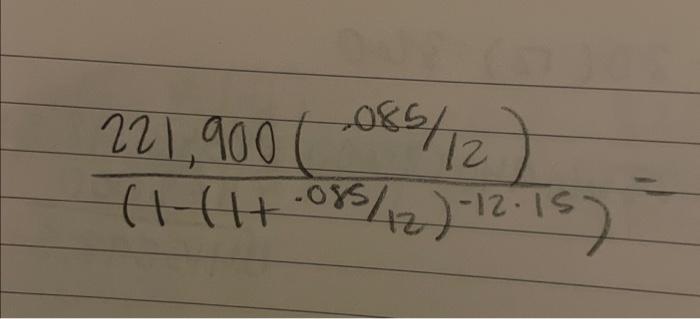 221,900 (.085/12) =
(1-(1+.085/12)-12·15)